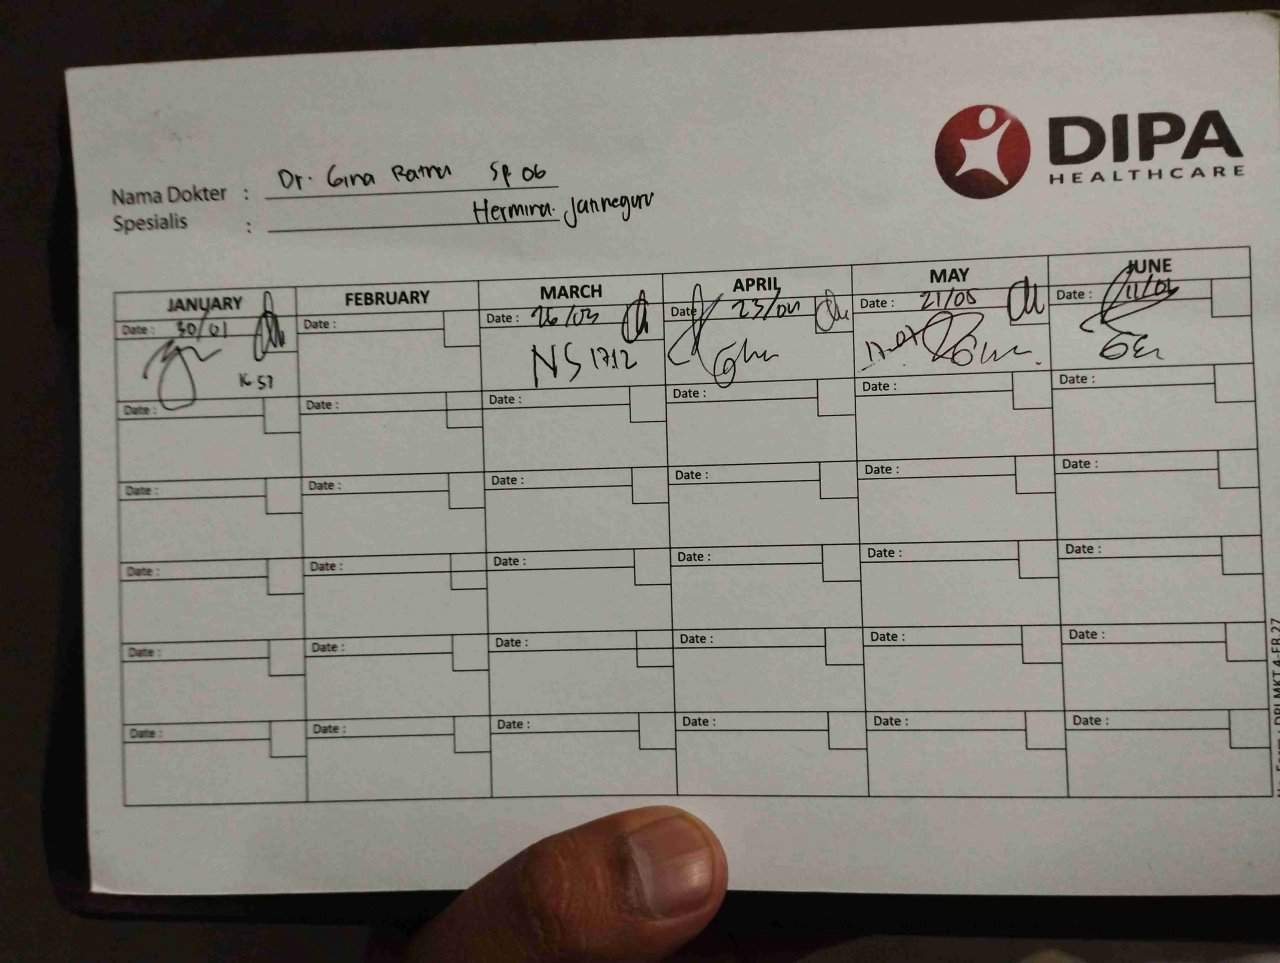 DIPA
HEALTHCARE
Nama Dokter : Dr. Gina Ratna Sp OG
Spesialis : Hermina Jatinegara
JANUARY FEBRUARY MARCH APRIL MAY JUNE
Date : 30/01 Date : Date : 26/03 Date 23/04 Date : 21/05 Date : 11/06
K 57 NS 1712
Date : Date : Date : Date : Date : Date :
Date : Date : Date : Date : Date : Date :
Date : Date : Date : Date : Date : Date :
Date : Date : Date : Date : Date : Date :
Date : Date : Date : Date : Date : Date :